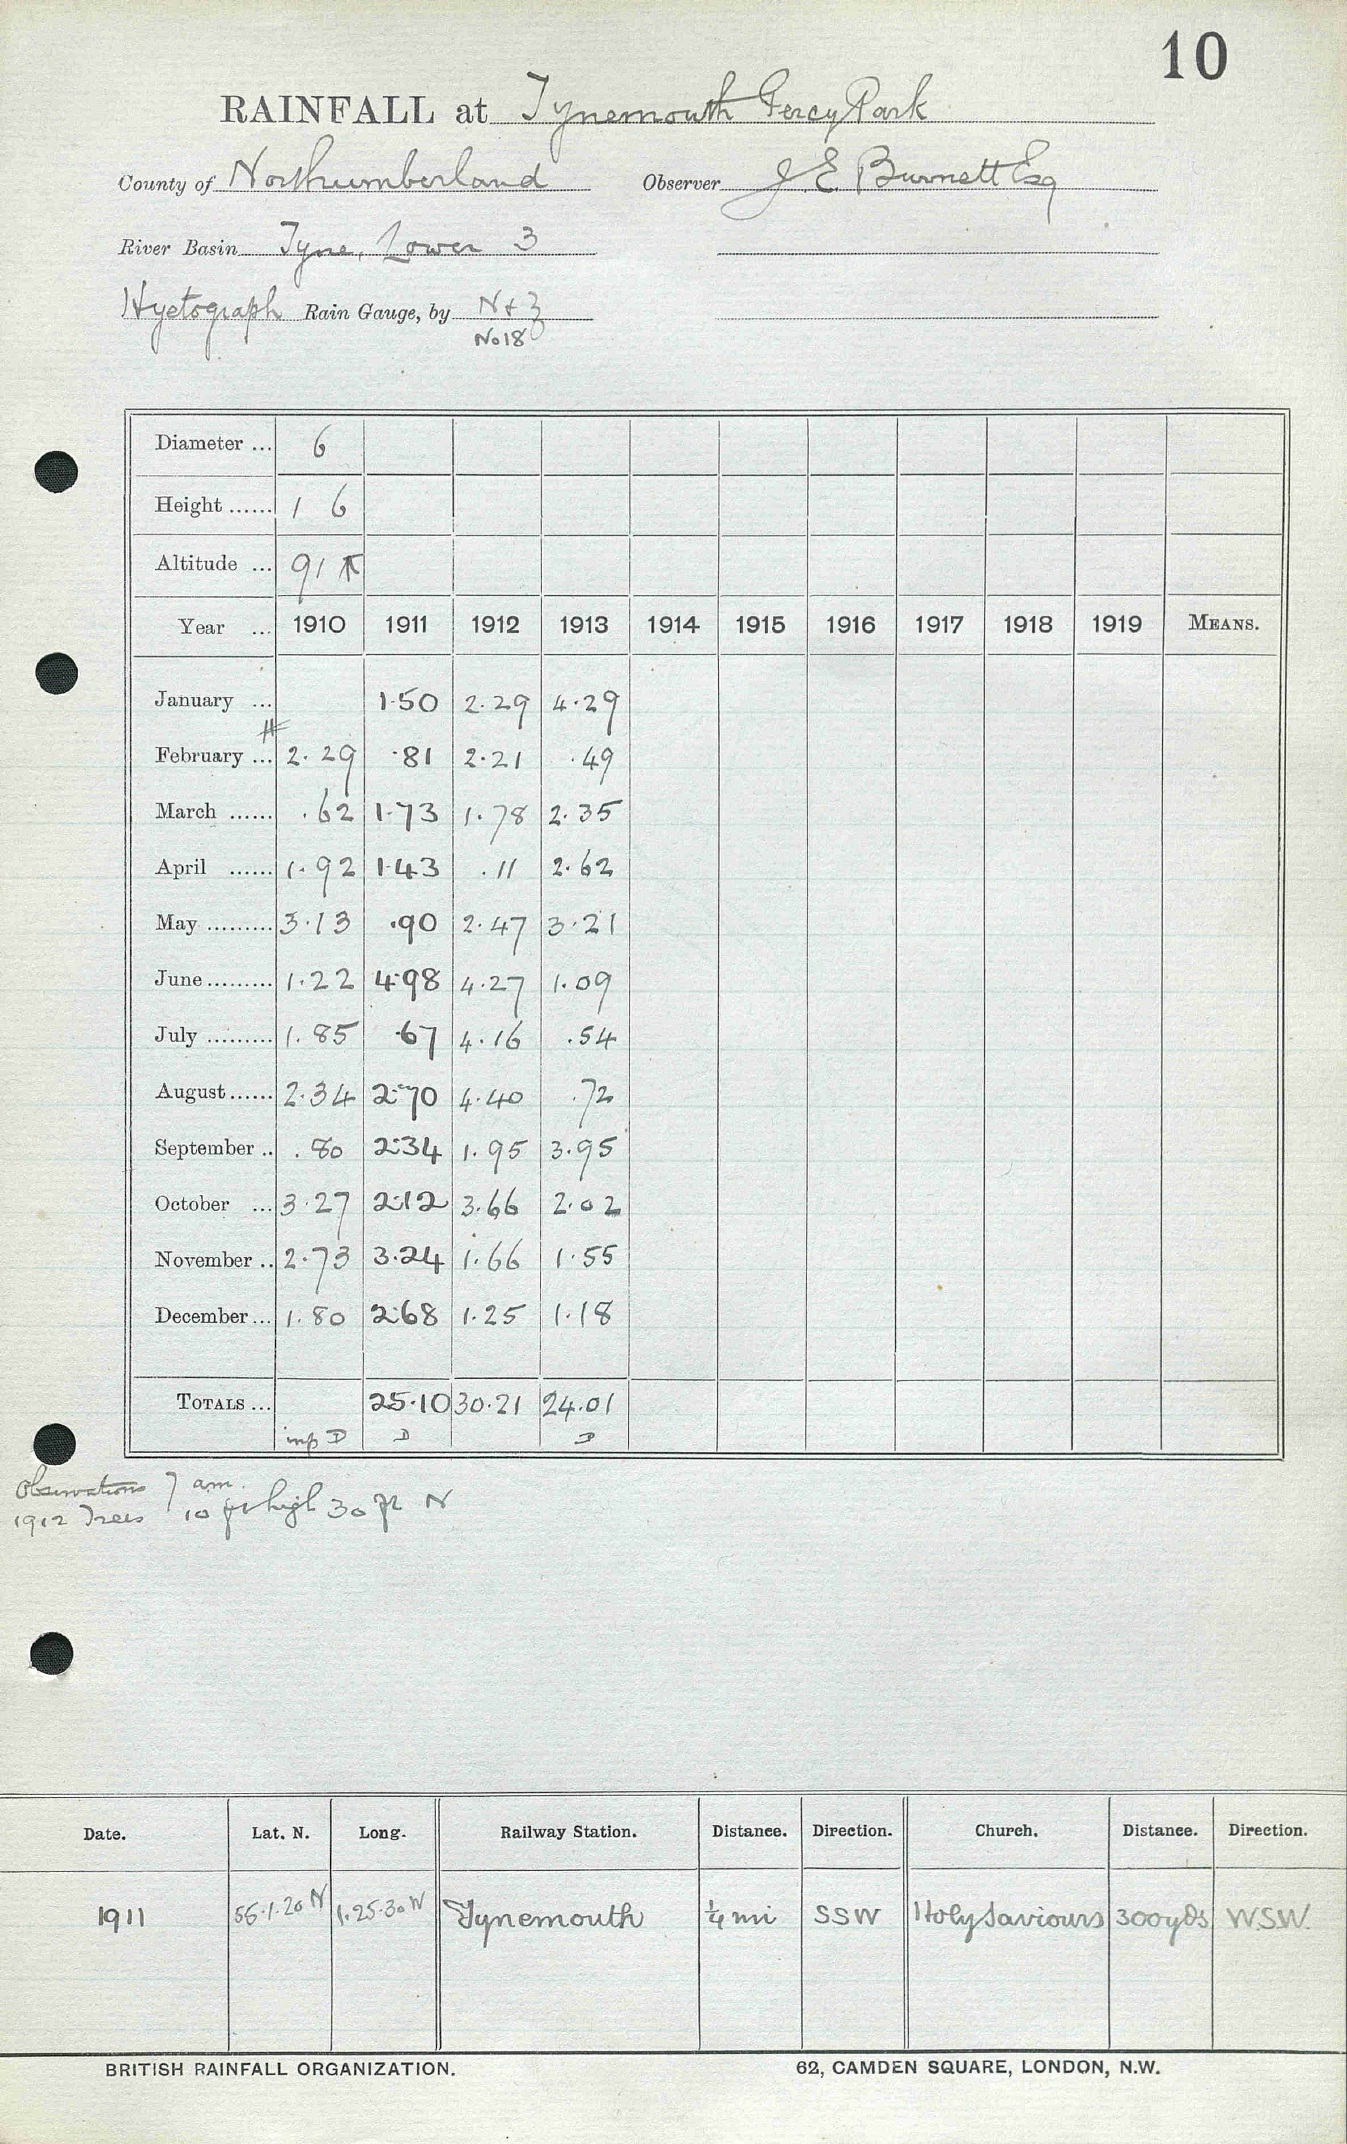 10
RAINFALL at Tynemouth Percy Park
County of Northumberland Observer J E Burnett Esq
River Basin Tyne, Lower 3
Hyetograph Rain Gauge, by N & Z
No 18
Diameter ... 6
Height ...... 1 6
Altitude ... 91
Year ... 1910 1911 1912 1913 1914 1915 1916 1917 1918 1919 MEANS.
January ... 1.50 2.29 4.29
February ... # 2.29 .81 2.21 .49
March ...... .62 1.73 1.78 2.35
April ...... 1.92 1.43 .11 2.62
May ......... 3.13 .90 2.47 3.21
June ......... 1.22 4.98 4.27 1.09
July ......... 1.85 .67 4.16 .54
August ...... 2.34 2.70 4.40 .72
September .. .80 2.34 1.95 3.95
October ... 3.27 2.12 3.66 2.02
November .. 2.73 3.24 1.66 1.55
December ... 1.80 2.68 1.25 1.18
TOTALS ... 25.10 30.21 24.01
imp D D D
Observations 7 am.
1912 Trees 10 ft high 30 ft N
Date. Lat. N. Long. Railway Station. Distance. Direction. Church. Distance. Direction.
1911 55.1.20 N 1.25.30 W Tynemouth ¼ mi SSW Holy Saviours 300 yds W.S.W.
BRITISH RAINFALL ORGANIZATION. 62, CAMDEN SQUARE, LONDON, N.W.